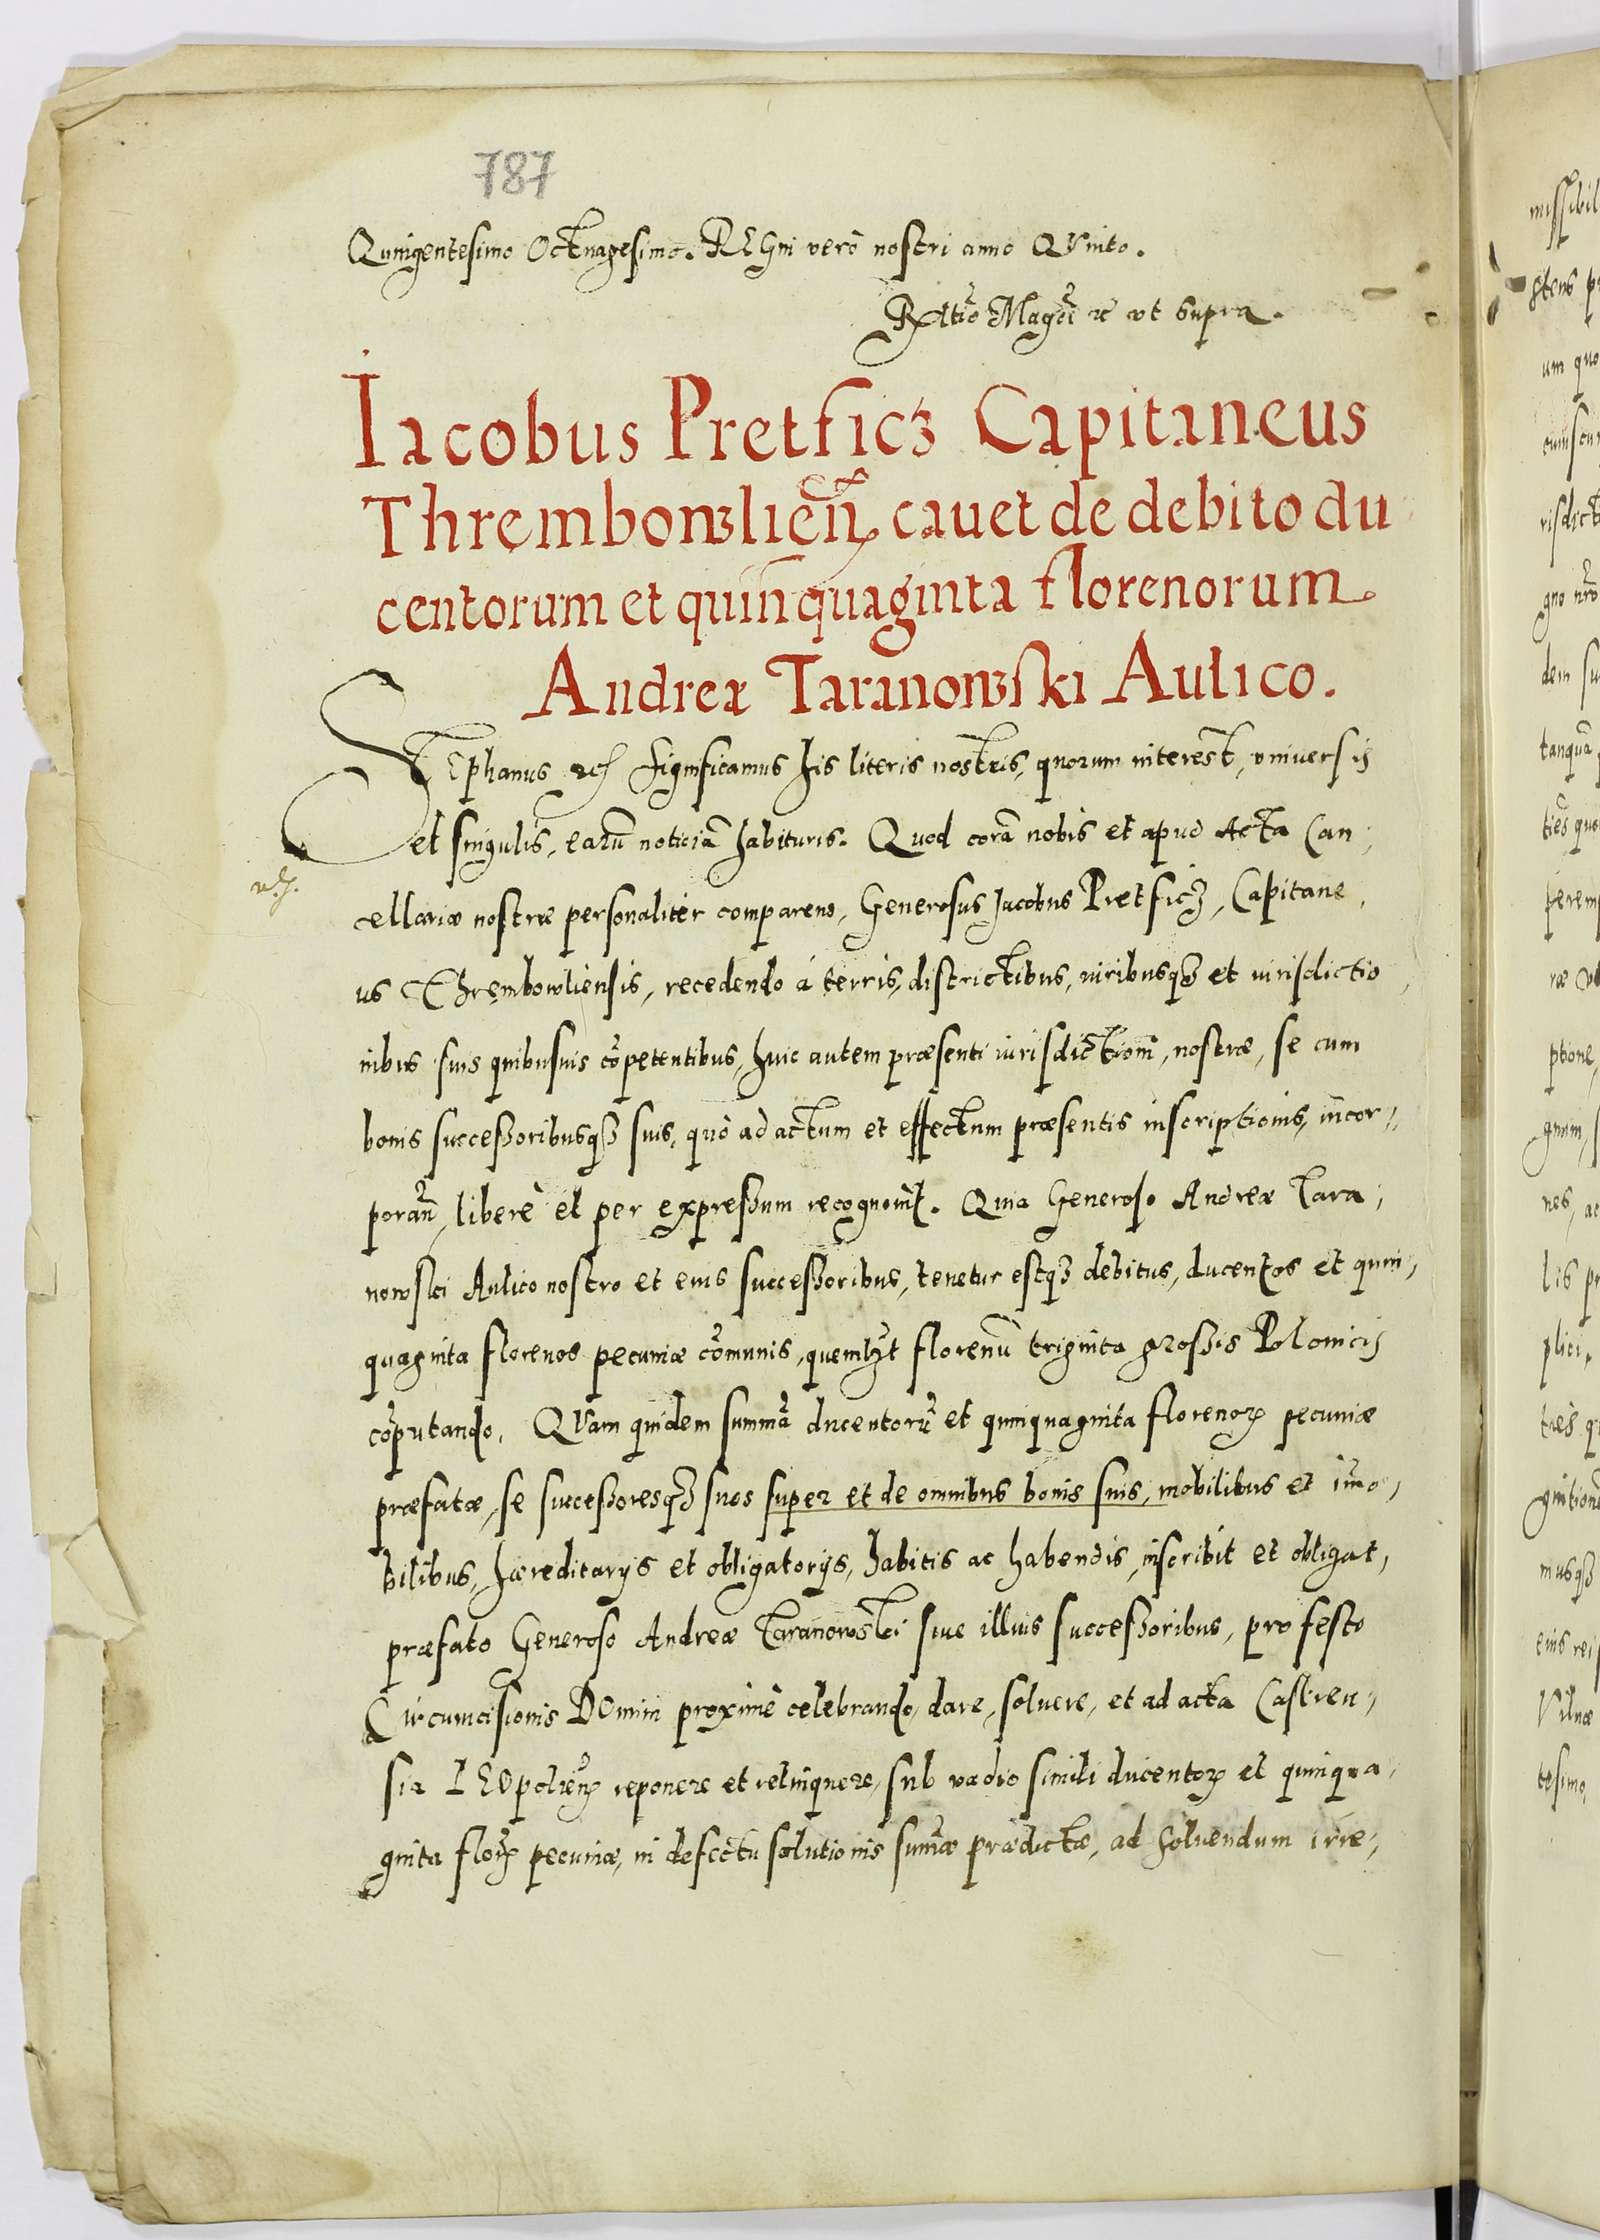 787
Quingentesimo Octuagesimo. REGni verò nostri anno QVinto.
Rltio Magci rc vt supra.
Iacobus Pretficz Capitaneus
Thrembowlien cauet de debito du
centorum et quinquaginta florenorum
Andreæ Taranowski Aulico.
STEphanus etc Significamus his literis nostris, quorum interest, vniversis
et singulis, earũ noticiã habituris. Quod corã nobis et apud Acta Can,
cellariæ nostræ personaliter comparens, Generosus Jacobus Pretficz, Capitane,
us Thrembowliensis, recedendo á terris, districtibus, iuribusqz et iurisdictio,
nibus suis quibusuis cõpetentibus, huic autem præsenti iurisdictioni, nostræ, se cum
bonis successoribusqz suis, quò ad actum et effectum præsentis inscriptionis, incor,,
porañ, liberè et per expressum recognouit. Quia Generoso Andreæ Tara,
nowski Aulico nostro et eius successoribus, tenetur estqz debitus, ducentos et quin,
quaginta florenos pecuniæ cõmunis, quemlꝫt florenũ triginta grossis Polonicis
cõputando. QVam quidem summã ducentorũ et quinquaginta florenoꝝ pecuniæ
præfatæ, se successoresqz suos super et de omnibus bonis suis, mobilibus et imo,
bilibus, hæreditarijs et obligatorijs, habitis ac habendis, inscribit et obligat,
præfato Generoso Andreæ Taranowski siue illius successoribus, pro festo
Circumcisionis DOmini proximè celebrando, dare, soluere, et ad acta Castren,
sia LEOpolieñ reponere et relinquere, sub vadio simili ducentoꝝ et quinqua,
ginta floꝝ pecuniæ, in defectu solutionis sumæ prædictæ, ad soluendum irre,